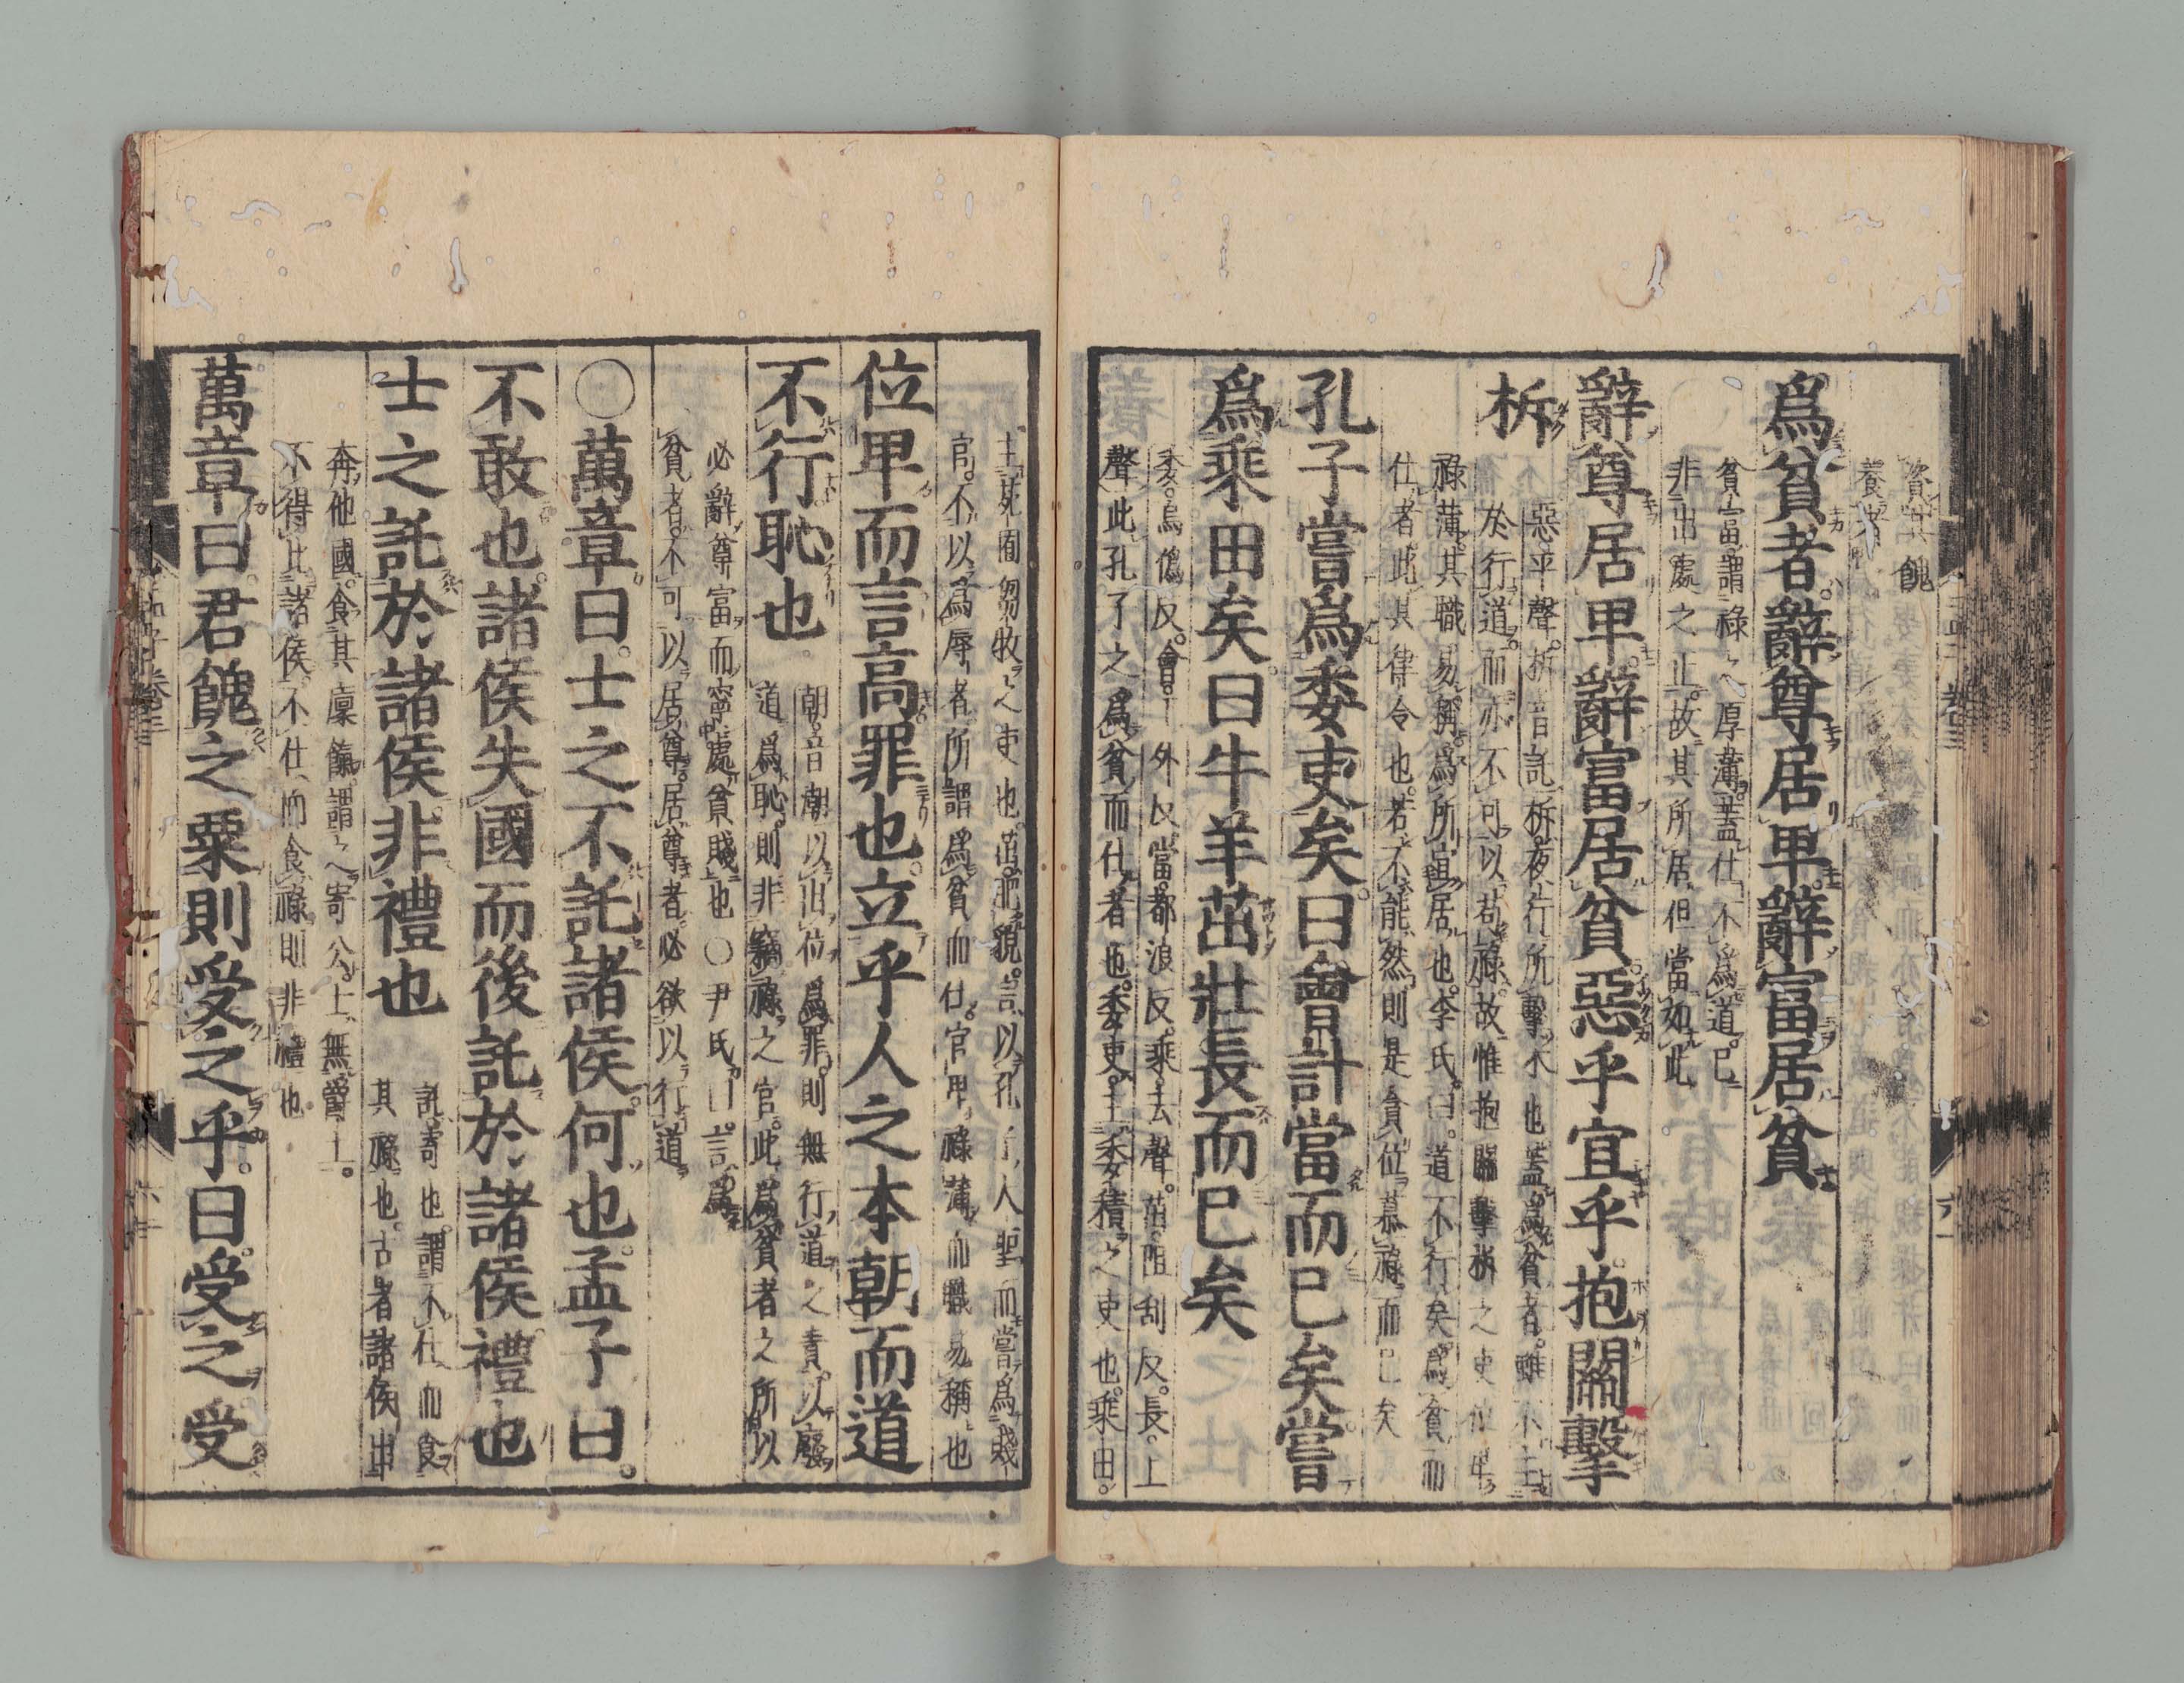 資其餽
養者
爲貧者辭尊居卑辭富居貧
貧富謂祿之厚薄蓋仕不爲道已
非出處之正故其所居但當如此
辭尊居卑辭富居貧惡乎宜乎抱關擊
柝
惡平聲柝音託柝夜行所擊木也蓋爲貧者雖不主
於行道而亦不可以苟祿故惟抱關擊柝之吏位卑
祿薄其職易稱爲所宜居也李氏曰道不行矣爲貧而
仕者此其律令也若不能然則是貪位慕祿而已矣
孔子嘗爲委吏矣曰會計當而已矣嘗
爲乘田矣曰牛羊茁壯長而已矣
委烏僞反會工外反當都浪反乘去聲茁阻刮反長上
聲此孔子之爲貧而仕者也委吏主委積之吏也乘田
主苑囿芻牧之吏也茁肥貌言以孔子大聖而嘗爲賤
官不以爲辱者所謂爲貧而仕官卑祿薄而職易稱也
位卑而言高罪也立乎人之本朝而道
不行恥也
朝音潮以出位爲罪則無行道之責以廢
道爲恥則非竊祿之官此爲貧者之所以
必辭尊富而寧處貧賤也○尹氏曰言爲
貧者不可以居尊居尊者必欲以行道
○萬章曰士之不託諸侯何也孟子曰
不敢也諸侯失國而後託於諸侯禮也
士之託於諸侯非禮也
託寄也謂不仕而食
其祿也古者諸侯出
奔他國食其廩餼謂之寄公士無爵土
不得比諸侯不仕而食祿則非禮也
萬章曰君餽之粟則受之乎曰受之受